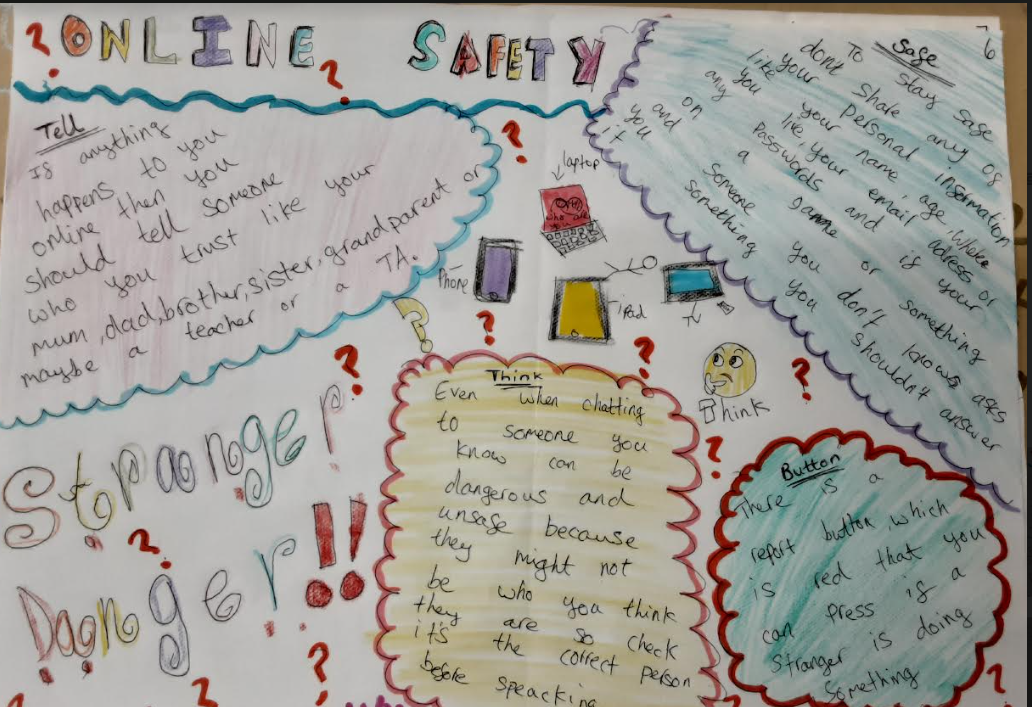 ONLINE SAFETY
6
Tell
If anything
happens to you
online then you
should tell someone
who you trust like your
mum, dad, brother, sister, grandparent or
maybe a teacher or a TA.
Safe
To stay safe
dont share any of
your personal information
like your name, age, where
you live, your email adress or
any Passwords and if your
on a game or something
and someone you don't knows asks
you something you shouldn't answer
it
laptop
who are
you
Phone
iPad
TV
Think
Stranger
Danger!!
Think
Even when chatting
to someone you
know can be
dangerous and
unsafe because
they might not
be who you think
they are so check
it's the correct person
before speacking
Button
There is a
report button which
is red that you
can press if a
stranger is doing
something